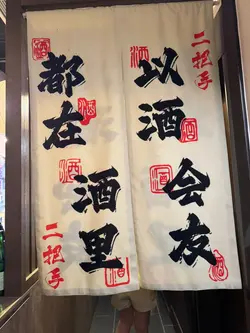 二把手
以酒
会友
都在
酒里
二把手
酒
酒
酒
酒